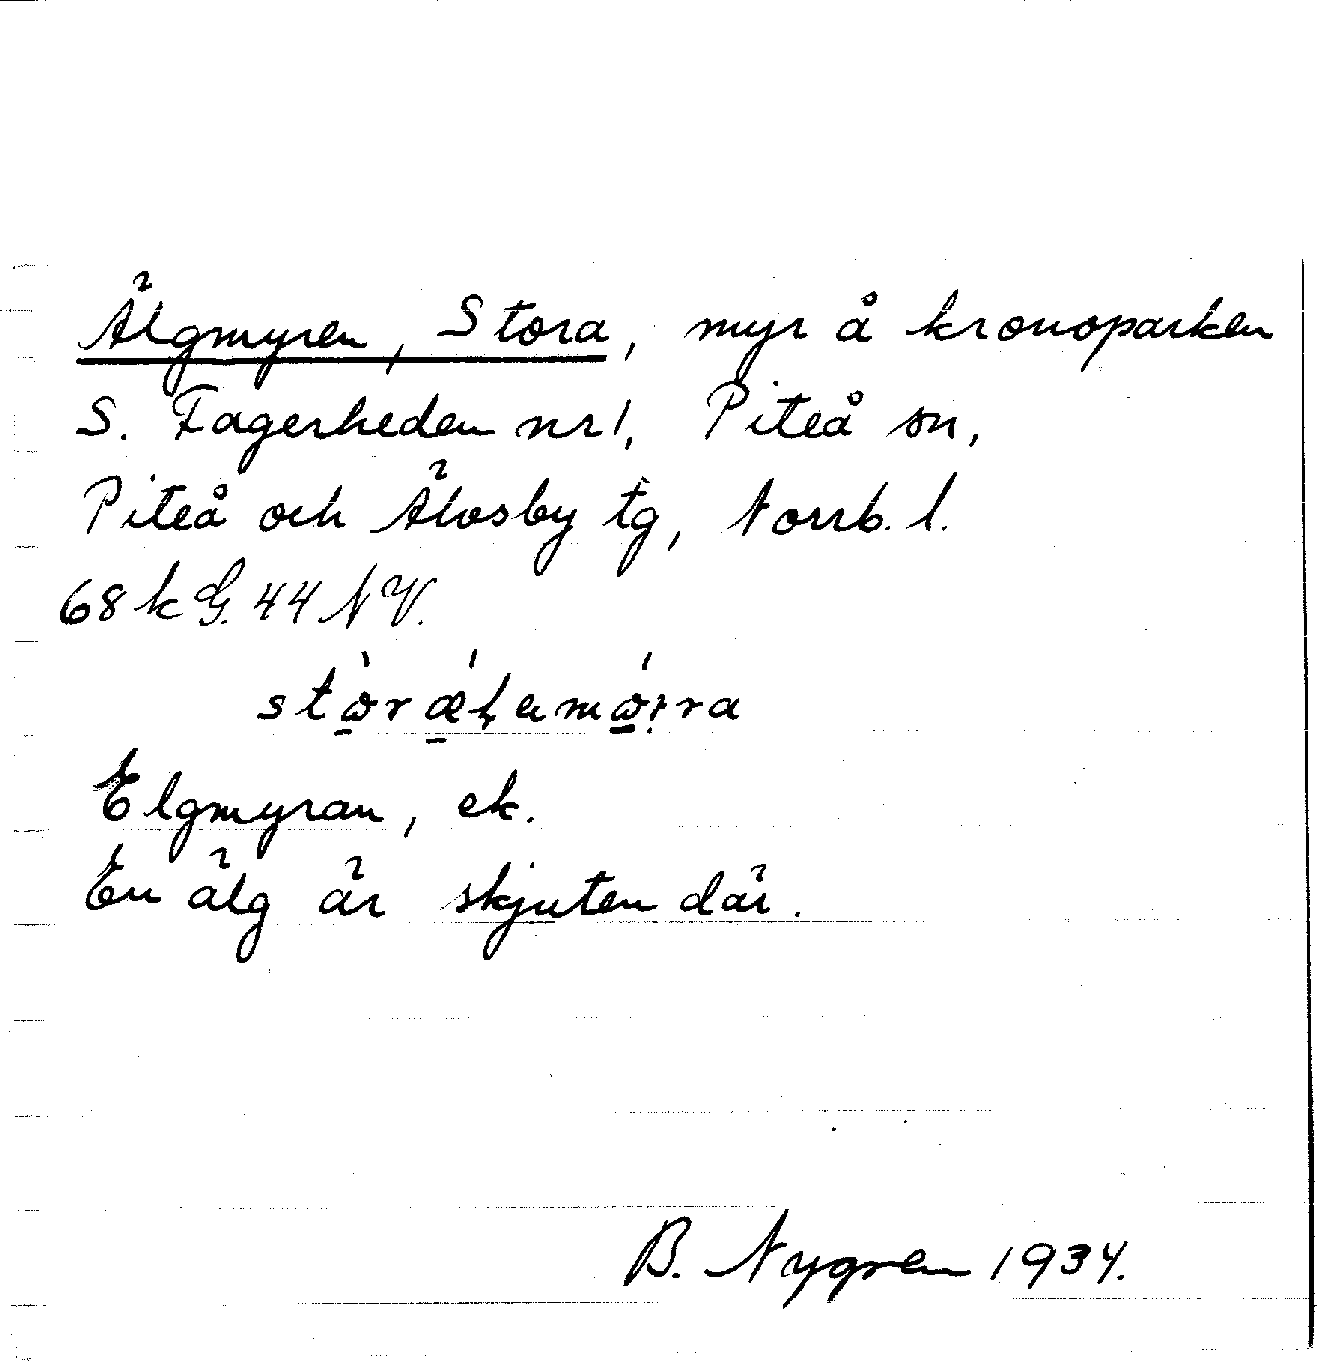 Älgmyren, Stora, myr å kronoparken
S. Fagerheden nr 1, Piteå sn,
Piteå och Älvsby tg, Norrb. l.
68 k G. 44 N V.
Elgmyran, ek.
En älg är skjuten där.
B. Nygren 1934.